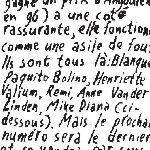 gagné un prix d'Angoulêm
en 96) a une coté
rassurante, elle fonction
comme une asile de fou:
Ils sont tous là: Blanque
Paquito Bolino, Henriette
Valium, Remi, Anne Vander
Linden, Mike Diana (ci-
dessous). Mais le prochai
numéro sera le dernier